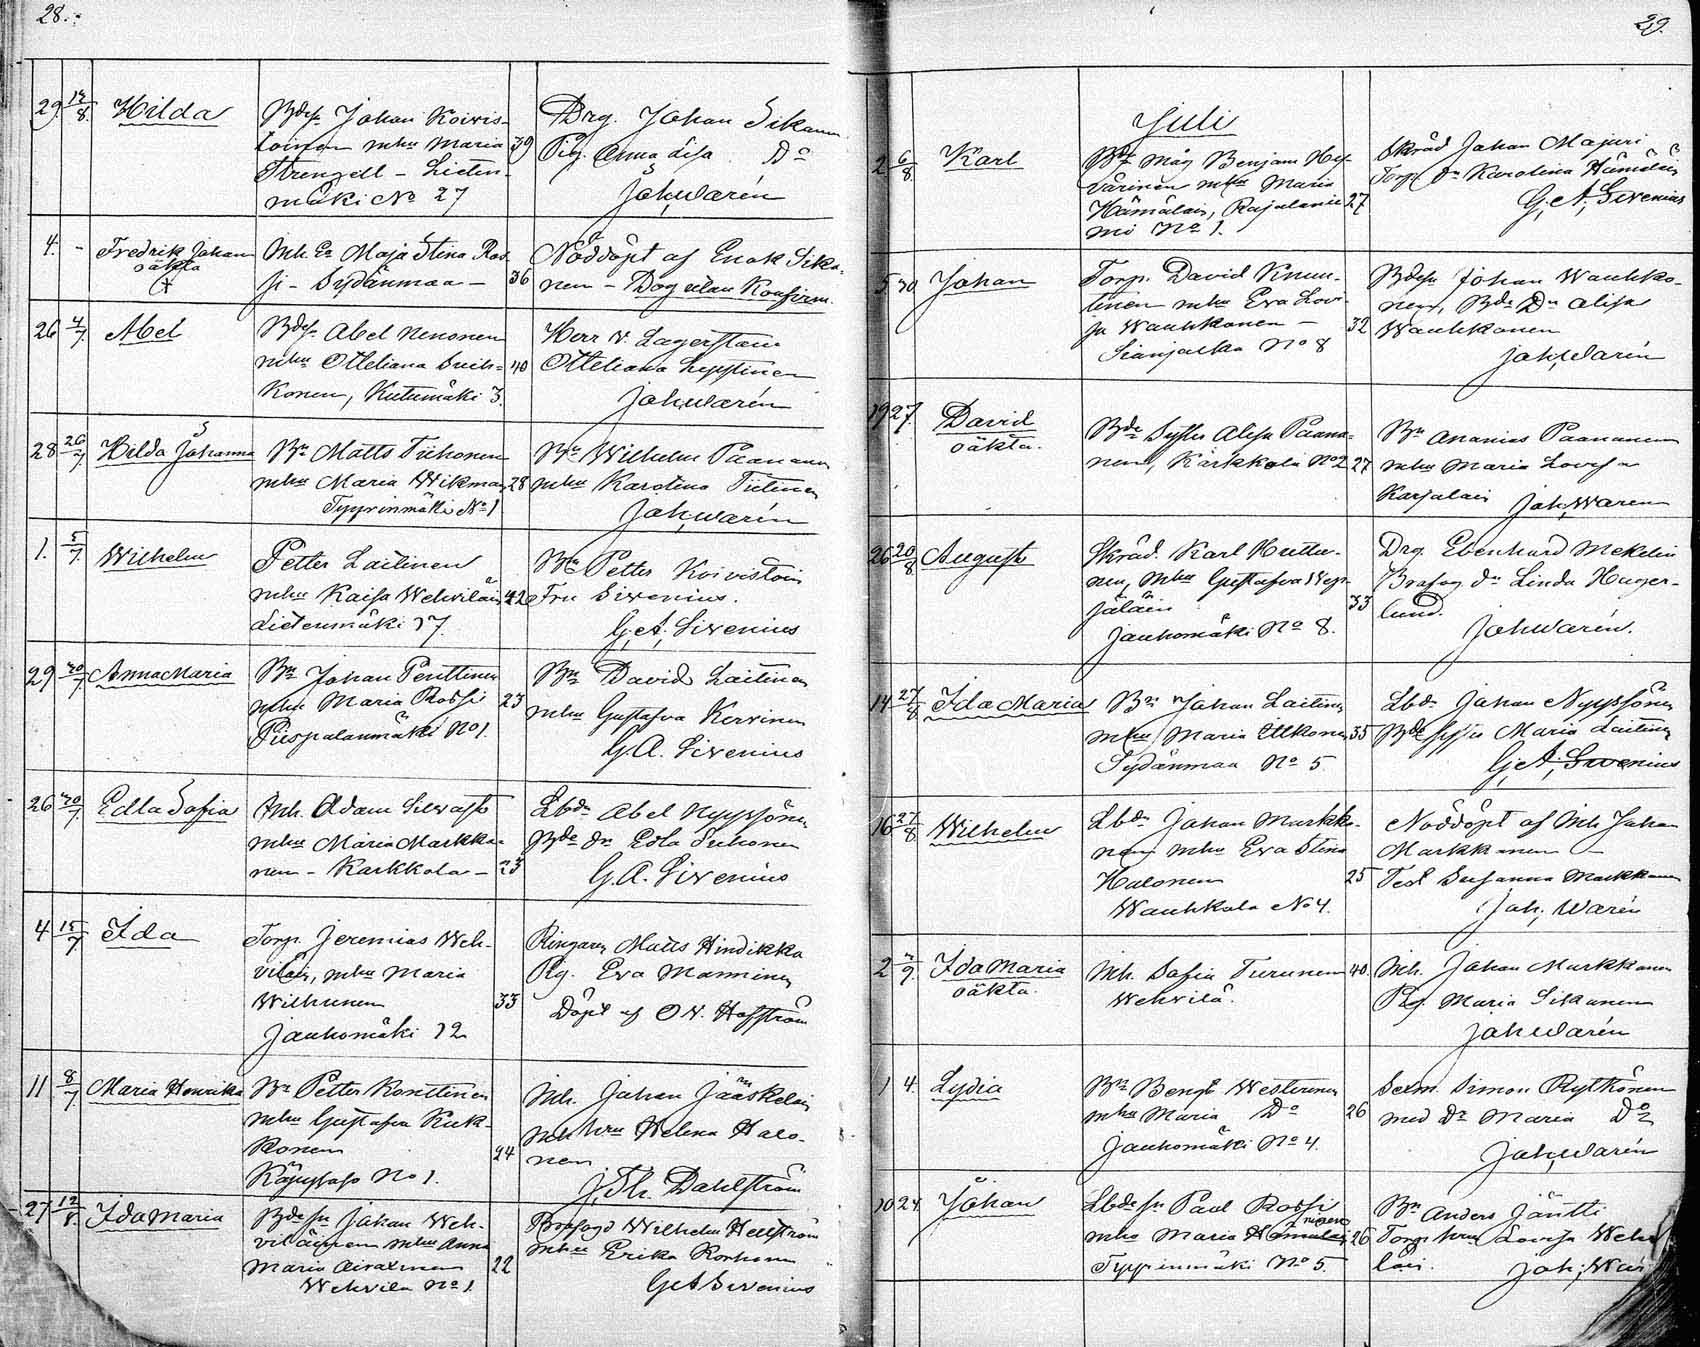 28.
29 12/8. Hilda
Bdesn Johan Koivis-
toinen mhu Maria 39
Strengell - Lieten-
mäki No 27
Drg. Johan Sikanen
Pig. Anna Lisa Do
Joh. Warén
4. - Fredrik Johan
oäkta
Inh. Ea Maja Stina Ros-
si - Sydänmaa - 36
Nöddöpt af Enok Sika-
nen - Dog utan Konfirm.
26 4/7. Abel
Bdesn Abel Nenonen
mhu Otteliana Suih- 40
konen, Kutumäki 3.
Herr V. Lagerstam
Otteliana Lyytinen
Joh. Warén
28 26/7 Hilda Johanna
Bn Matts Tiihonen
mhu Maria Wikman 28
Tyyrinmäki No 1
Bn Wilhelm Paananen
mhu Karolina Tiitinen
Joh. Warén
1. 5/7. Wilhelm
Petter Laitinen
mhu Kaisa Wehviläin 42
Lietenmäki 17.
Bn Petter Koivistoin
Fru Sirenius.
G. A. Sirenius
29 10/7 Anna Maria
Bn Johan Penttinen
mhu Maria Rossi 23
Piispalanmäki No 1.
Bn David Laitinen
mhu Gustafva Kervinen
G. A. Sirenius
26 10/7. Edla Sofia
Inh. Adam Siewast
mhu Maria Markka-
nen - Karkkola - 23
Lbdn Abel Nyyssönen
Bde dr Edla Tiihonen
G. A. Sirenius
4 15/7 Ida
Torp. Jeremias Weh-
viläin, mhu Maria
Wilhunen 33
Jauhomäki 12
Ringaren Matts Hindikka
Pig. Eva Manninen
Döpt af O. N. Hofström
11 8/7 Maria Henrika
Bn Petter Konttinen
mhu Gustafva Kuk-
konen 24
Käpysalo No 1.
Inh. Johan Jääskeläin
Inh. hru Helena Halo-
nen
J. Th. Dahlström
27 12/8. Ida Maria
Bdesn Johan Weh-
viläinen mhu Anna
Maria Airaxinen 22
Wehvilä No 1
Brofogd Wilhelm Hellström
mhu Erika Korhonen
G. A. Sirenius
29.
Juli
2 6/8 Karl
Bde måg Benjam Hy-
värinen mhu Maria
Hämäläin, Rajalanie- 27
mi No 1.
Skräd Johan Majuri
Torp. dr Karolina Hämäläin
G. A. Sirenius
5 30. Johan
Torp. David Knuu-
tinen mhu Eva Lovi-
sa Wauhkonen - 32
Sianjalka No 8
Bdesn Johan Wauhko-
nen, Bde Dr Alisa
Wauhkonen
Joh. Warén
19 27. David
oäkta.
Bde Syster Alisa Paana-
nen, Kärkkolä No 2 27
Bn Ananias Paananen
mhu Maria Lovisa
Karjalain Joh. Waren
26 20/8 August
Skräd. Karl Huttu-
nen, mhu Gustafva Wep-
säläin 33
Jauhomäki No 8.
Drg. Ebenhard Mekelin
Brofog. dr Linda Hager-
lund.
Joh Warén.
14 27/8. Ida Maria
Bn Johan Laitinen
mhu Maria Ikkonen 35
Sydänmaa No 5
Lbdn Johan Nyyssönen
Bde syster Maria Laitinen
G. A. Sirenius
16 27/8 Wilhelm
Lbdn Johan Markka-
nen mhu Eva Stina
Halonen 25
Wauhkola No 4.
Nöddöpt af Inh Johan
Markkanen -
Test Susanna Markkanen
Joh. Warén
2 9. Ida Maria
oäkta.
Inh. Sofia Turunen 40.
Wehvilä.
Inh. Johan Markkanen
Pig. Maria Sikanen
Joh Warén
1 4. Lydia
Bn Bengt Westerinen
mhu Maria Do 26
Jauhomäki No 4.
Sexm. Simon Rytkönen
med Dr Maria Do
Joh. Warén
10 24. Johan
Lbdesn Paul Rossi
mhu Maria 26
Tyyrinmäki No 5.
Bn Anders Jäntti
Torp. hru Lovisa Wehvi-
läin. Joh. War